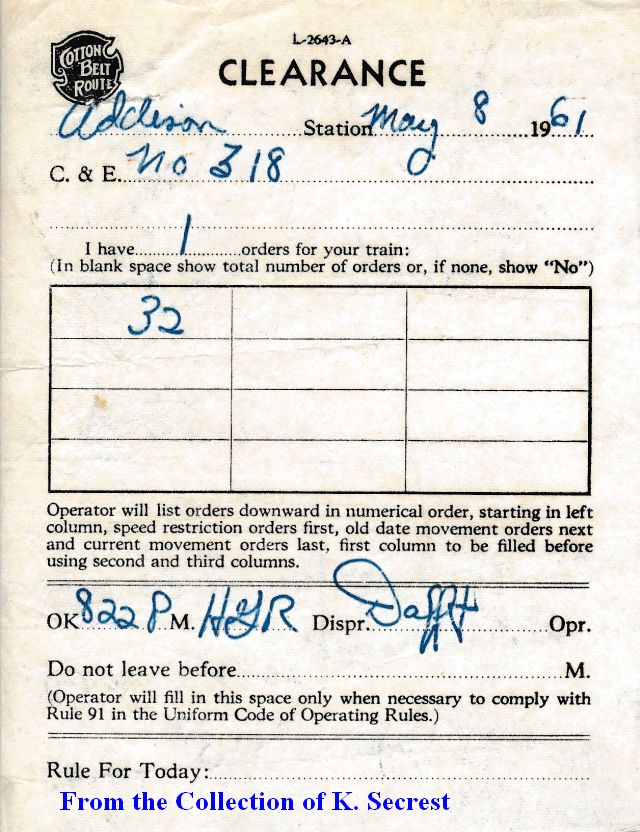 L-2643-A
COTTON BELT ROUTE
CLEARANCE
Addison Station May 8 1961
C. & E. No 318
I have 1 orders for your train:
(In blank space show total number of orders or, if none, show "No")
32
Operator will list orders downward in numerical order, starting in left
column, speed restriction orders first, old date movement orders next
and current movement orders last, first column to be filled before
using second and third columns.
OK 822 P M. HGR Dispr. Dafft Opr.
Do not leave before M.
(Operator will fill in this space only when necessary to comply with
Rule 91 in the Uniform Code of Operating Rules.)
Rule For Today:
From the Collection of K. Secrest